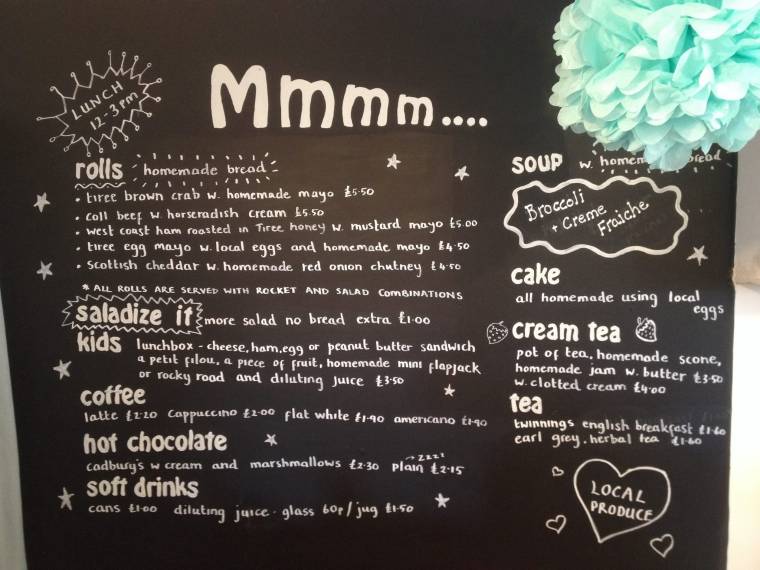 LUNCH
12-3pm
Mmmm....
rolls homemade bread
• tiree brown crab w. homemade mayo £5.50
• coll beef w. horseradish cream £5.50
• west coast ham roasted in Tiree honey w. mustard mayo £5.00
• tiree egg mayo w. local eggs and homemade mayo £4.50
• scottish cheddar w. homemade red onion chutney £4.50
* ALL ROLLS ARE SERVED WITH ROCKET AND SALAD COMBINATIONS
saladize it more salad no bread extra £1.00
kids lunchbox - cheese, ham, egg or peanut butter sandwich
a petit filou, a piece of fruit, homemade mini flapjack
or rocky road and diluting juice £3.50
coffee
latte £2.20 cappuccino £2.00 flat white £1.90 americano £1.90
hot chocolate
cadbury's w cream and marshmallows £2.30 plain £2.15
zzzz
soft drinks
cans £1.00 diluting juice. glass 60p/jug £1.50
soup w. bread
Broccoli
+ Creme
Fraiche
cake
all homemade using local
eggs
cream tea
pot of tea, homemade scone,
homemade jam w. butter £3.50
w. clotted cream £4.00
tea
twinnings english breakfast £1.60
earl grey. herbal tea £1.60
LOCAL
PRODUCE